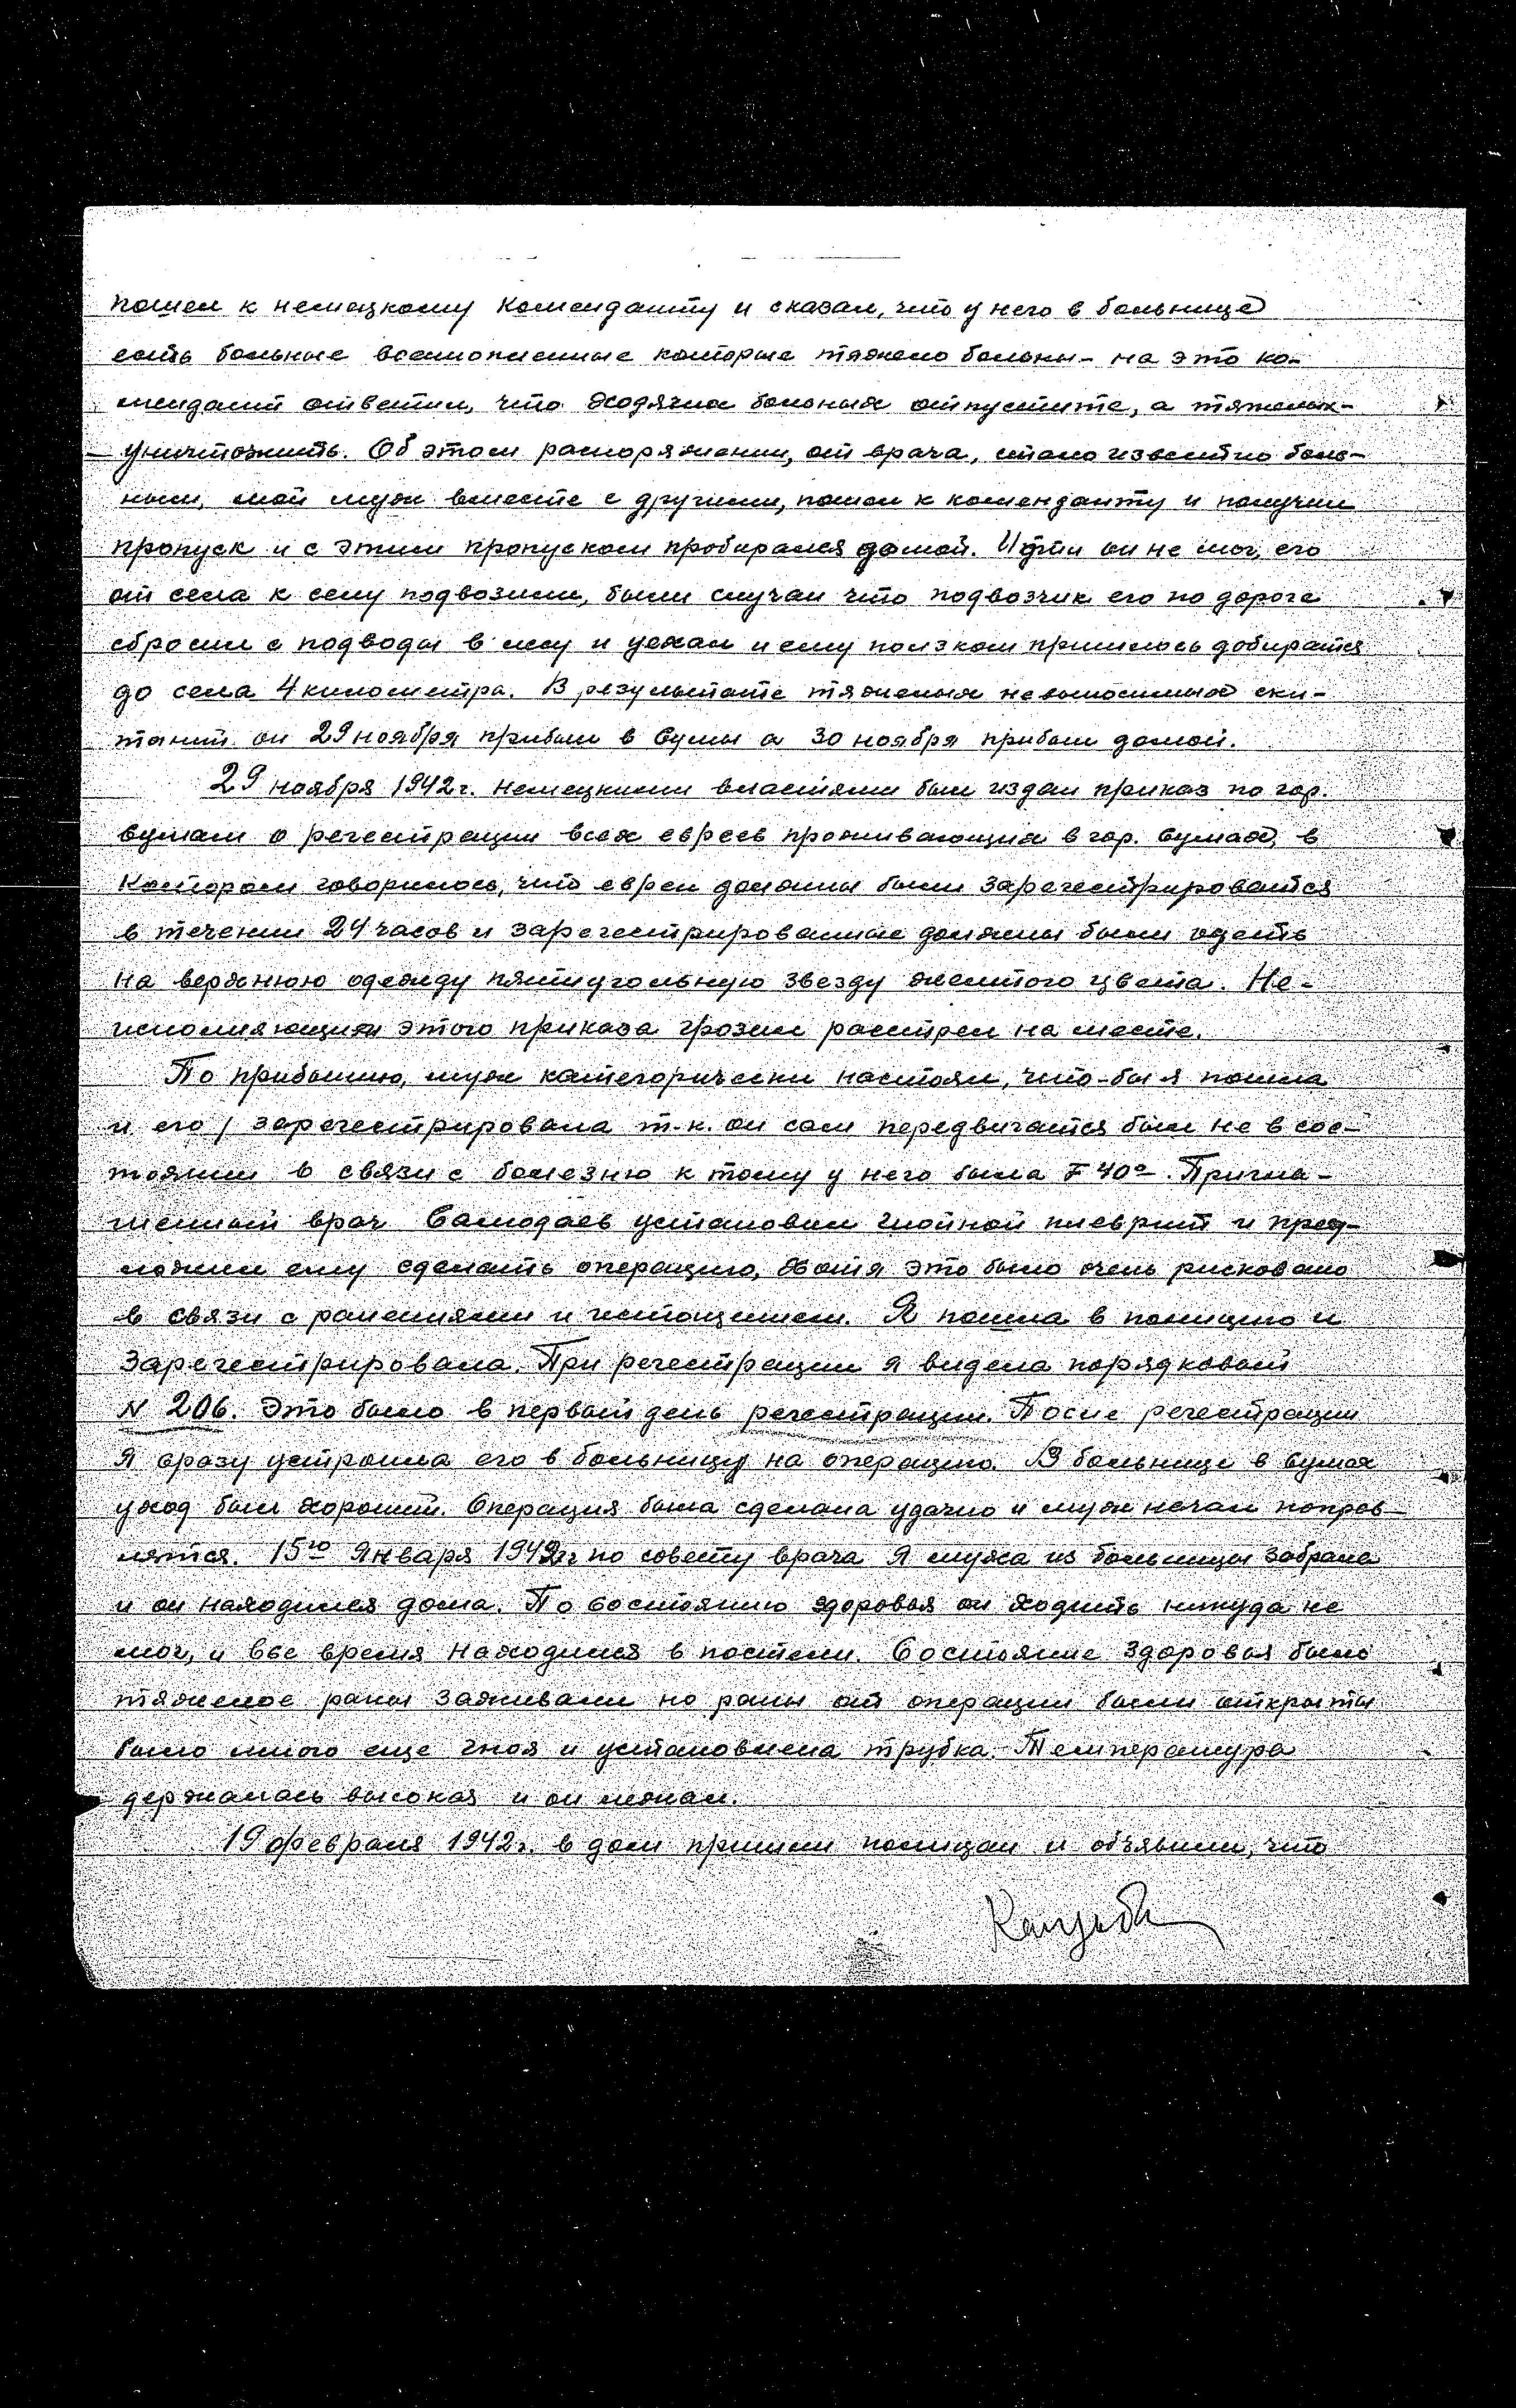 пошел к немецкому комендантту и сказал, что у него в больнице
есть больные военнопленные которые тяжело больны - на это ко-
мендант ответил, что ходячих больных отпустите, а тяжелых -
- уничтожить. Об этом распоряжении, от врача, стало известно боль-
ным, мой муж вместе с другими, пошел к коменданту и получил
пропуск и с этим пропуском пробирался домой. Идти он не мог, его
от села к селу подвозили, были случаи что подвозчик его по дороге
сбросил с подводы в лесу и уехал и ему ползком пришлось добиратся
до села 4 километра. В результате тяжелых невыносимых ски-
таний он 29 ноября прибыл в Сумы а 30 ноября прибыл домой.
29 ноября 1942 г. немецкими властями был издан приказ по гор.
Сумам о регестрации всех евреев проживающих в гор. Сумах, в
котором говорилось, что евреи должны были зарегестрироватся
в течении 24 часов и зарегестрированные должны были одеть
на верхнюю одежду пятиугольную звезду желтого цвета. Не-
исполняющим этого приказа грозил расстрел на месте.
По прибытию, муж категорически настоял, что-бы я пошла
и его зарегестрировала т.к. он сам передвигатся был не в сос-
тоянии в связи с болезню к тому у него была 40°. Пригла-
шенный врач Самодаев установил гнойной плеврит и пред-
ложил ему сделать операцию, хотя это было очень рисковано
в связи с ранениями и истощением. Я пошла в полицию и
зарегестрировала. При регестрации я видела порядковый
N 206. Это было в первый день регестрации. После регестрации
я сразу устроила его в больницу на операцию. В больнице в Сумах
уход был хороший. Операция была сделана удачно и муж начал поправ-
лятся. 15го января 1942 г по совету врача я мужа из больницы забрала
и он находился дома. По состоянию здоровья он ходить никуда не
мог, и все время находился в постели. Состояние здоровья было
тяжелое раны заживали но раны от операции были открыты
было много еще гноя и установлена трубка. Температура
держалась высокая и он лежал.
19 февраля 1942 г. в дом пришли полицаи и объявили, что